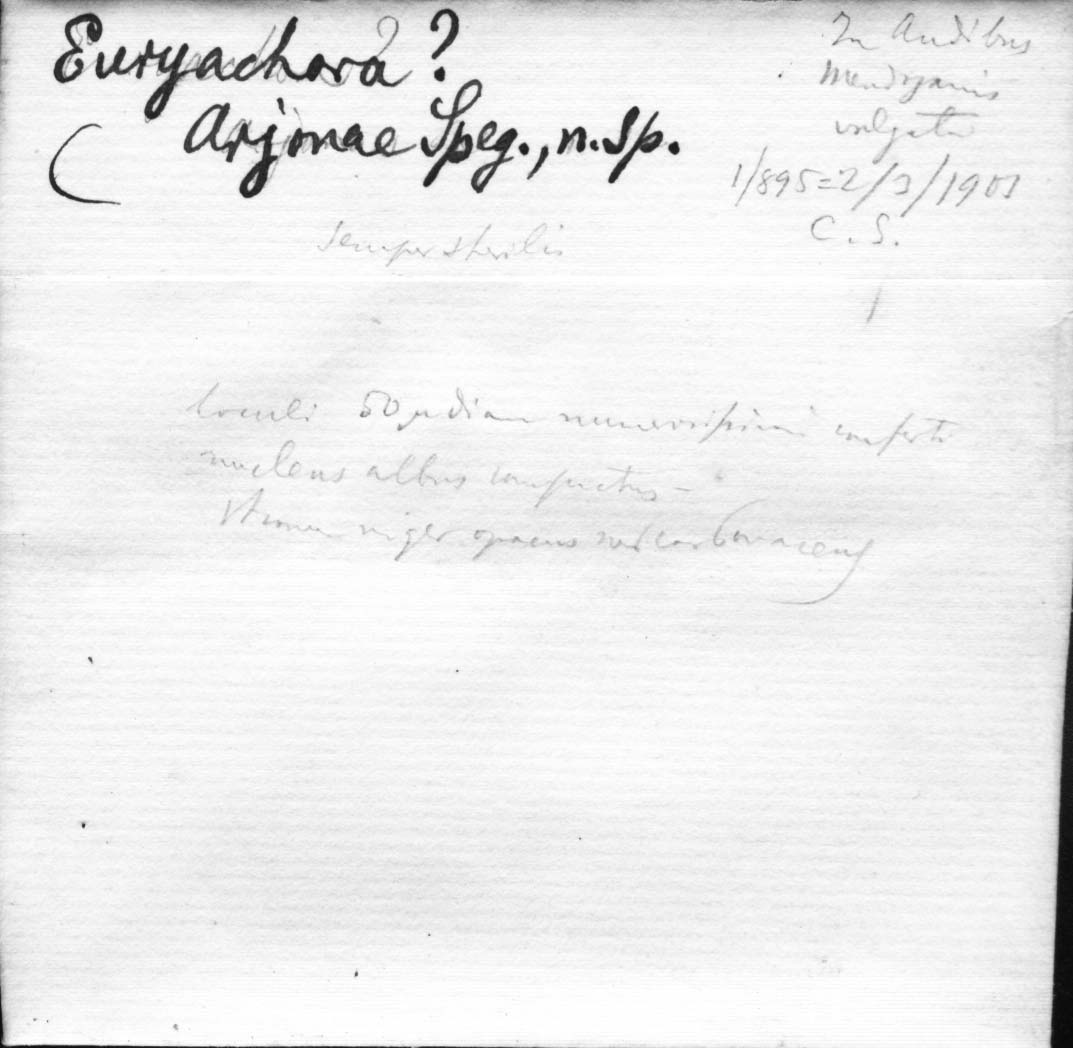 Euryachora?
Arjonae Speg., n. sp.
In Andibus
Mendozanis
vulgata
1/895=2/3/1901
C. S.
semper sterilis
loculi 50 µ diam numerosissimi conferti
nucleus albus compactus -
stroma niger opacus carbonaceus